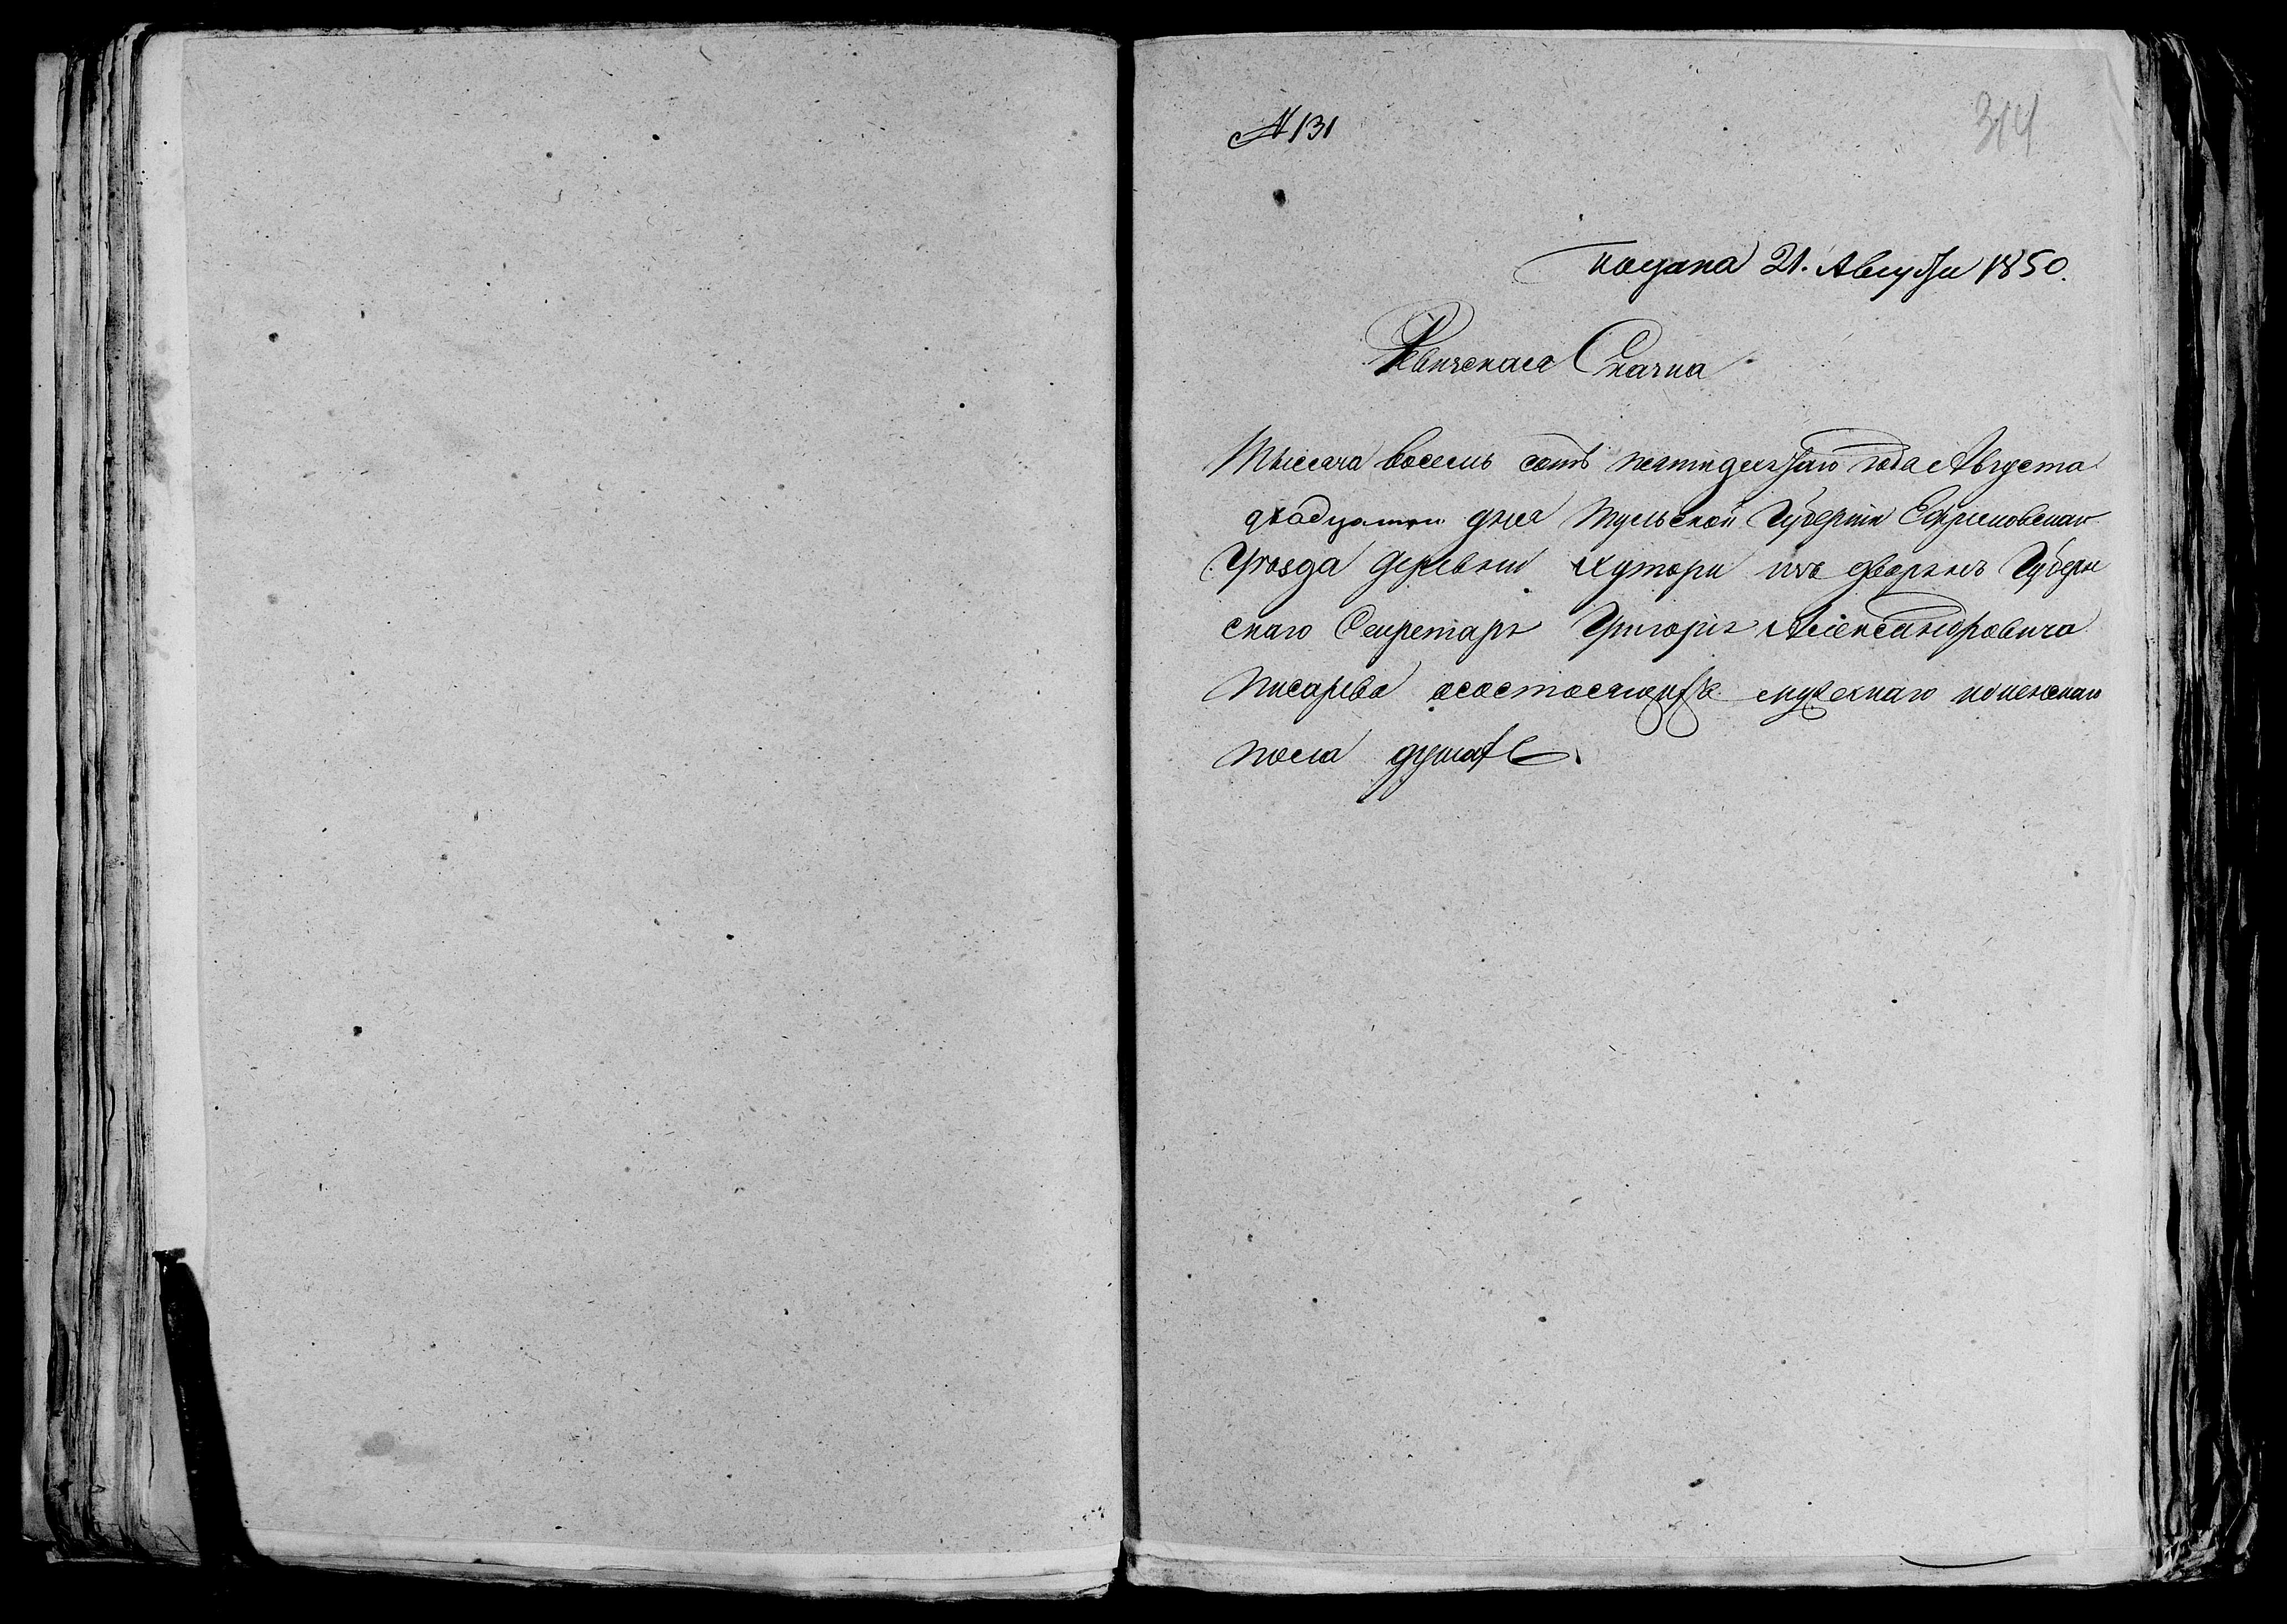 № 131
314
подана 21. Августа 1850.
Ревизская Сказка
Тысяча восемь сотъ пятидесятаго года Августа
двадцатаго дня Тульской Губернiи Ефремовскаго
Уѣзда деревни Хутора изъ дворянъ Губерн
скаго Секретаря Григорiя Александровича
Писарева о состоящихъ мужескаго и женскаго
пола душахъ.